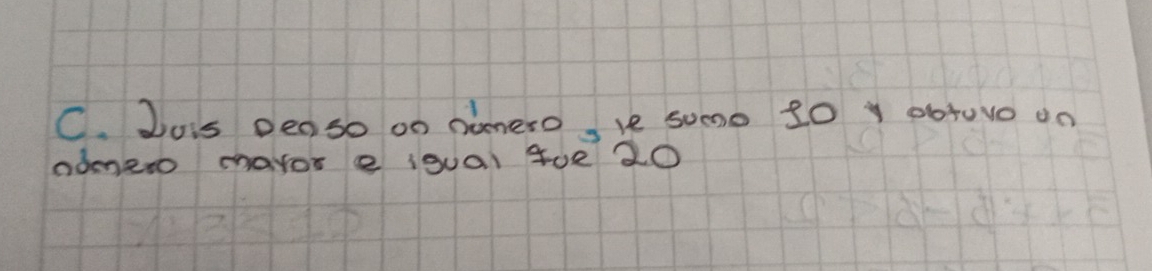 C. Luis penso un número, le sumo 10 y obtuvo un
número mayor e igual que 20